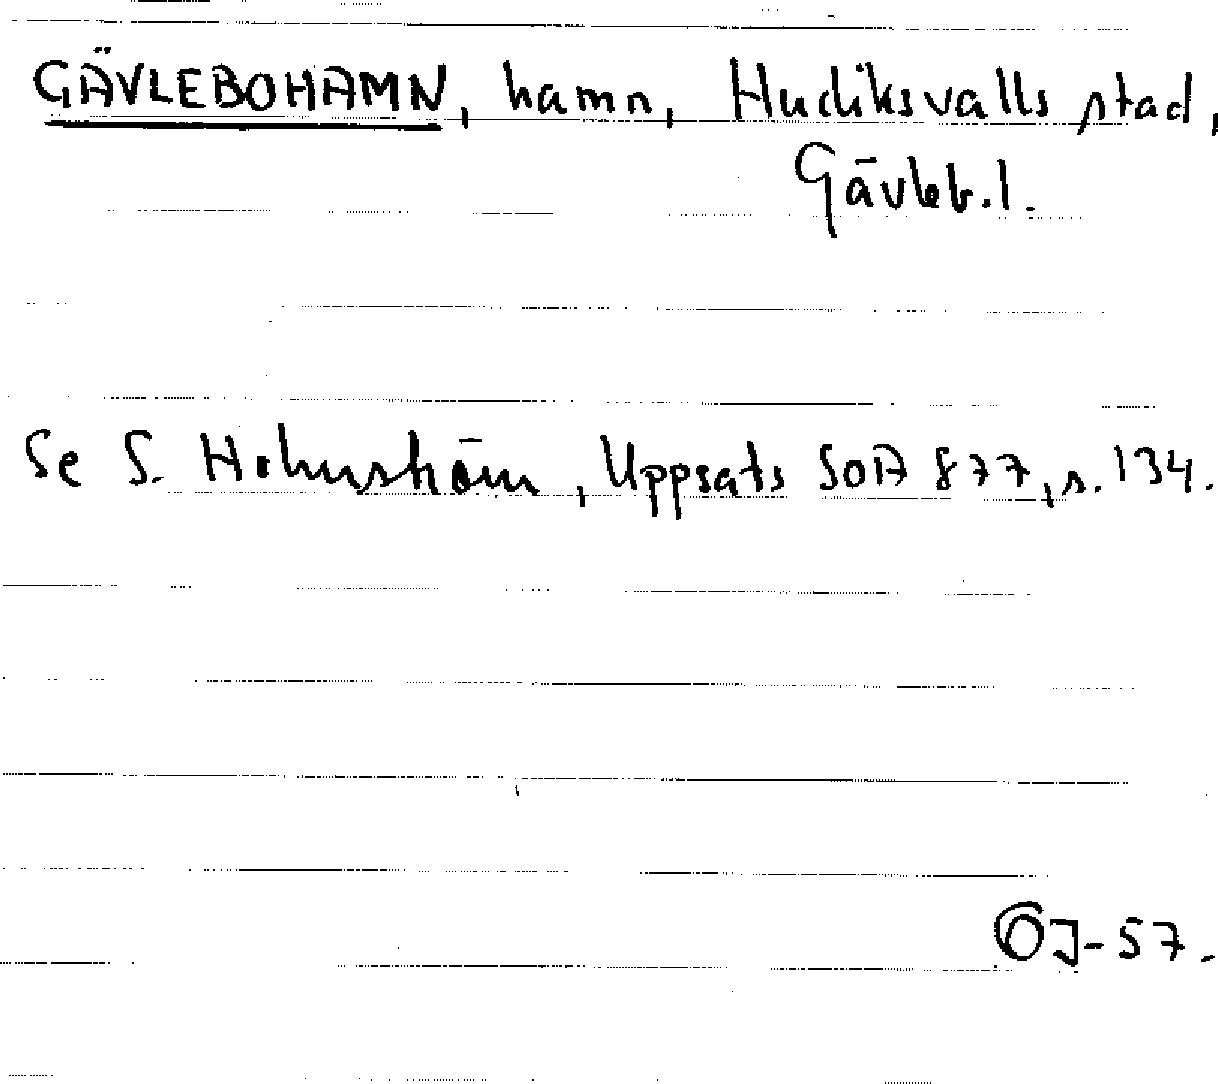 GÄVLEBOHAMN, hamn, Hudiksvalls stad,
Gävleb.l.
Se S. Holmström, Uppsats SOA 877, s. 134.
ÖJ-57.